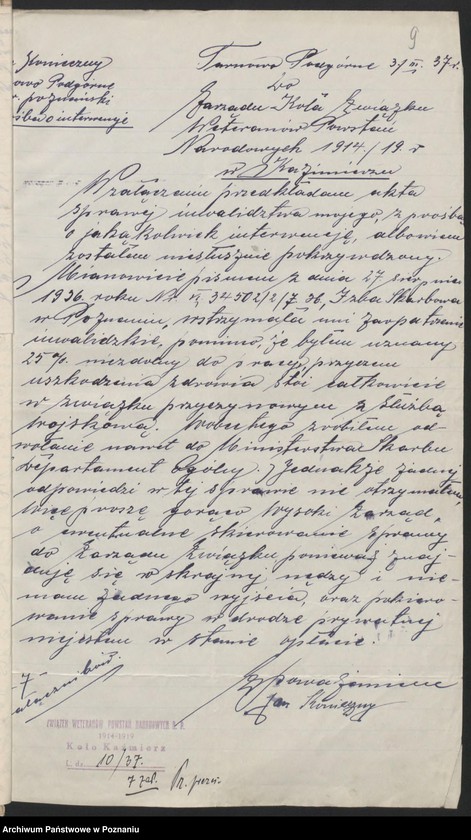 Tarnowo Podgórne 3/VI. 37 r.
9
Konieczny
owo Podgórne
poznański
ośba o interwencję
Do
Zarządu Koła Związku
Weteranów Powstań
Narodowych 1914/19 r
w Kaźmierzu
W załączeniu przedkładam akta
sprawy inwalidztwa mojego, z prośbą
o jakąkolwiek interwencję, albowiem
zostałem niesłusznie pokrzywdzony.
Mianowicie pismem z dnia 27 sierpnia
1936. roku Nr. 34502/2/7 36, Izba Skarbowa
w Poznaniu, wstrzymała mi zaopatrzenie
inwalidzkie, pomimo, że byłem uznany
25% niezdolny do pracy, przyczem
uszkodzenie zdrowia stoi całkowicie
w związku przyczynowym z służbą
wojskową. Wobec tego zrobiłem od-
wołanie nawet do Ministerstwa Skarbu
Departament Ogólny. Jednakże żadnej
odpowiedzi w tej sprawie nie otrzymałem,
więc proszę gorąco Wysoki Zarząd,
o ewentualne skierowanie sprawy
do Zarządu Związku ponieważ znaj-
duję się w skrajnej nędzy i nie-
mam żadnego wyjścia, oraz pokiero-
wanie sprawy w drodze prywatnej
niejestem w stanie opłacić.
7
załączników
Z poważaniem
Jan Konieczny
ZWIĄZEK WETERANÓW POWSTAŃ NARODOWYCH R. P.
1914-1919
Koło Kaźmierz
L. dz. 10/37.
7 zał.
Archiwum Państwowe w Poznaniu